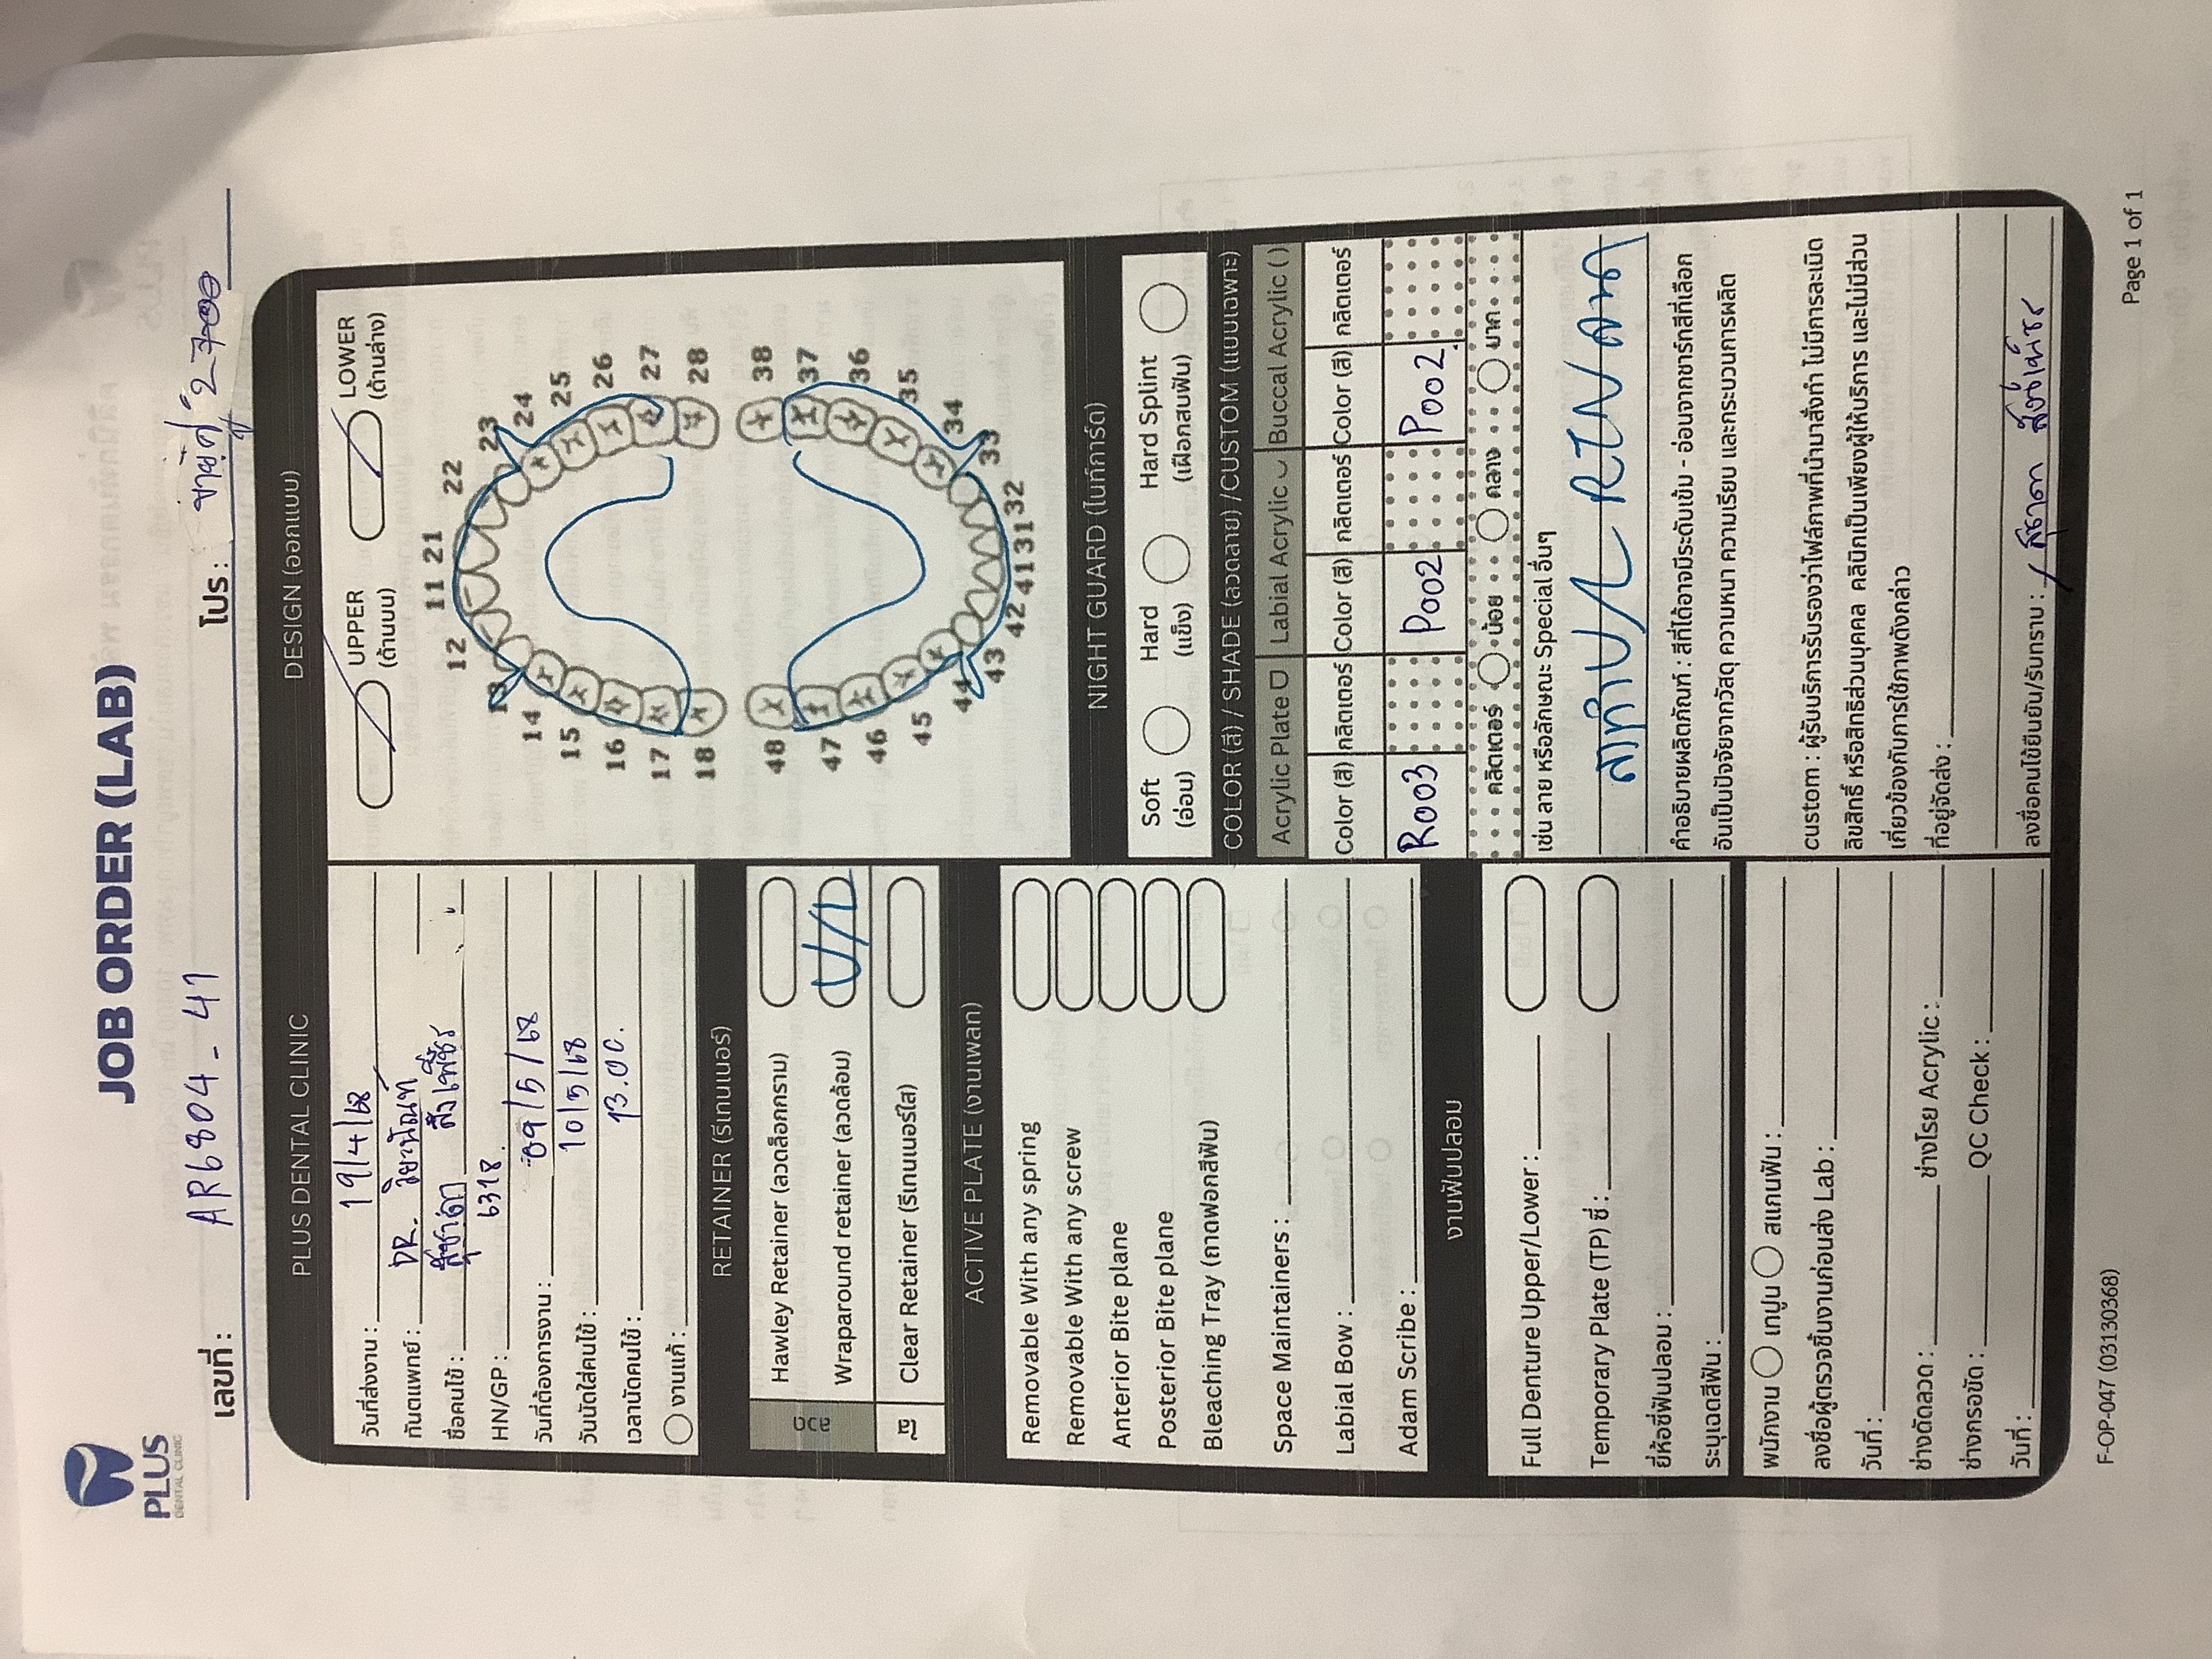 PLUS
DENTAL CLINIC
JOB ORDER (LAB)
เลขที่ : AR6804-41
โปร : 2700
PLUS DENTAL CLINIC
วันที่ส่งงาน : 19/4/68
ทันตแพทย์ : DR.
ชื่อคนไข้ : สุชาดา
HN/GP : 6318
วันที่ต้องการงาน : 09/5/68
วันนัดใส่คนไข้ : 10/5/68
เวลานัดคนไข้ : 13.00.
งานแก้ :
DESIGN (ออกแบบ)
UPPER (ด้านบน)
LOWER (ด้านล่าง)
11 21
12 22
13 23
14 24
15 25
16 26
17 27
18 28
48 38
47 37
46 36
45 35
44 34
43 33
42 41 31 32
RETAINER (รีเทนเนอร์)
ลวด
Hawley Retainer (ลวดล็อกกราม)
Wraparound retainer (ลวดล้อม) U/L
ใส
Clear Retainer (รีเทนเนอร์ใส)
ACTIVE PLATE (งานเพลท)
Removable With any spring
Removable With any screw
Anterior Bite plane
Posterior Bite plane
Bleaching Tray (ถาดฟอกสีฟัน)
Space Maintainers :
Labial Bow :
Adam Scribe :
งานฟันปลอม
Full Denture Upper/Lower :
Temporary Plate (TP) ซี่ :
ยี่ห้อซี่ฟันปลอม :
ระบุเฉดสีฟัน :
พนักงาน เทปูน สแกนฟัน :
ลงชื่อผู้ตรวจชิ้นงานก่อนส่ง Lab :
วันที่ :
ช่างดัดลวด : ช่างโรย Acrylic :
ช่างกรอขัด : QC Check :
วันที่ :
NIGHT GUARD (ไนท์การ์ด)
Soft (อ่อน)
Hard (แข็ง)
Hard Splint (เฝือกสบฟัน)
COLOR (สี) / SHADE (ลวดลาย) /CUSTOM (แบบเฉพาะ)
Acrylic Plate Labial Acrylic Buccal Acrylic ( )
Color (สี) กลิตเตอร์ Color (สี) กลิตเตอร์ Color (สี) กลิตเตอร์
R003 P002 P002
คลิตเตอร์ น้อย กลาง มาก
เช่น ลาย หรือลักษณะ Special อื่นๆ
U/L RTN
คำอธิบายผลิตภัณฑ์ : สีที่ได้อาจมีระดับเข้ม - อ่อนจากชาร์ทสีที่เลือก
อันเป็นปัจจัยจากวัสดุ ความหนา ความเรียบ และกระบวนการผลิต
custom : ผู้รับบริการรับรองว่าไฟล์ภาพที่นำมาสั่งทำ ไม่มีการละเมิด
ลิขสิทธิ์ หรือสิทธิส่วนบุคคล คลินิกเป็นเพียงผู้ให้บริการ และไม่มีส่วน
เกี่ยวข้องกับการใช้ภาพดังกล่าว
ที่อยู่จัดส่ง :
ลงชื่อคนไข้ยืนยัน/รับทราบ : สุชาดา
F-OP-047 (03130368)
Page 1 of 1